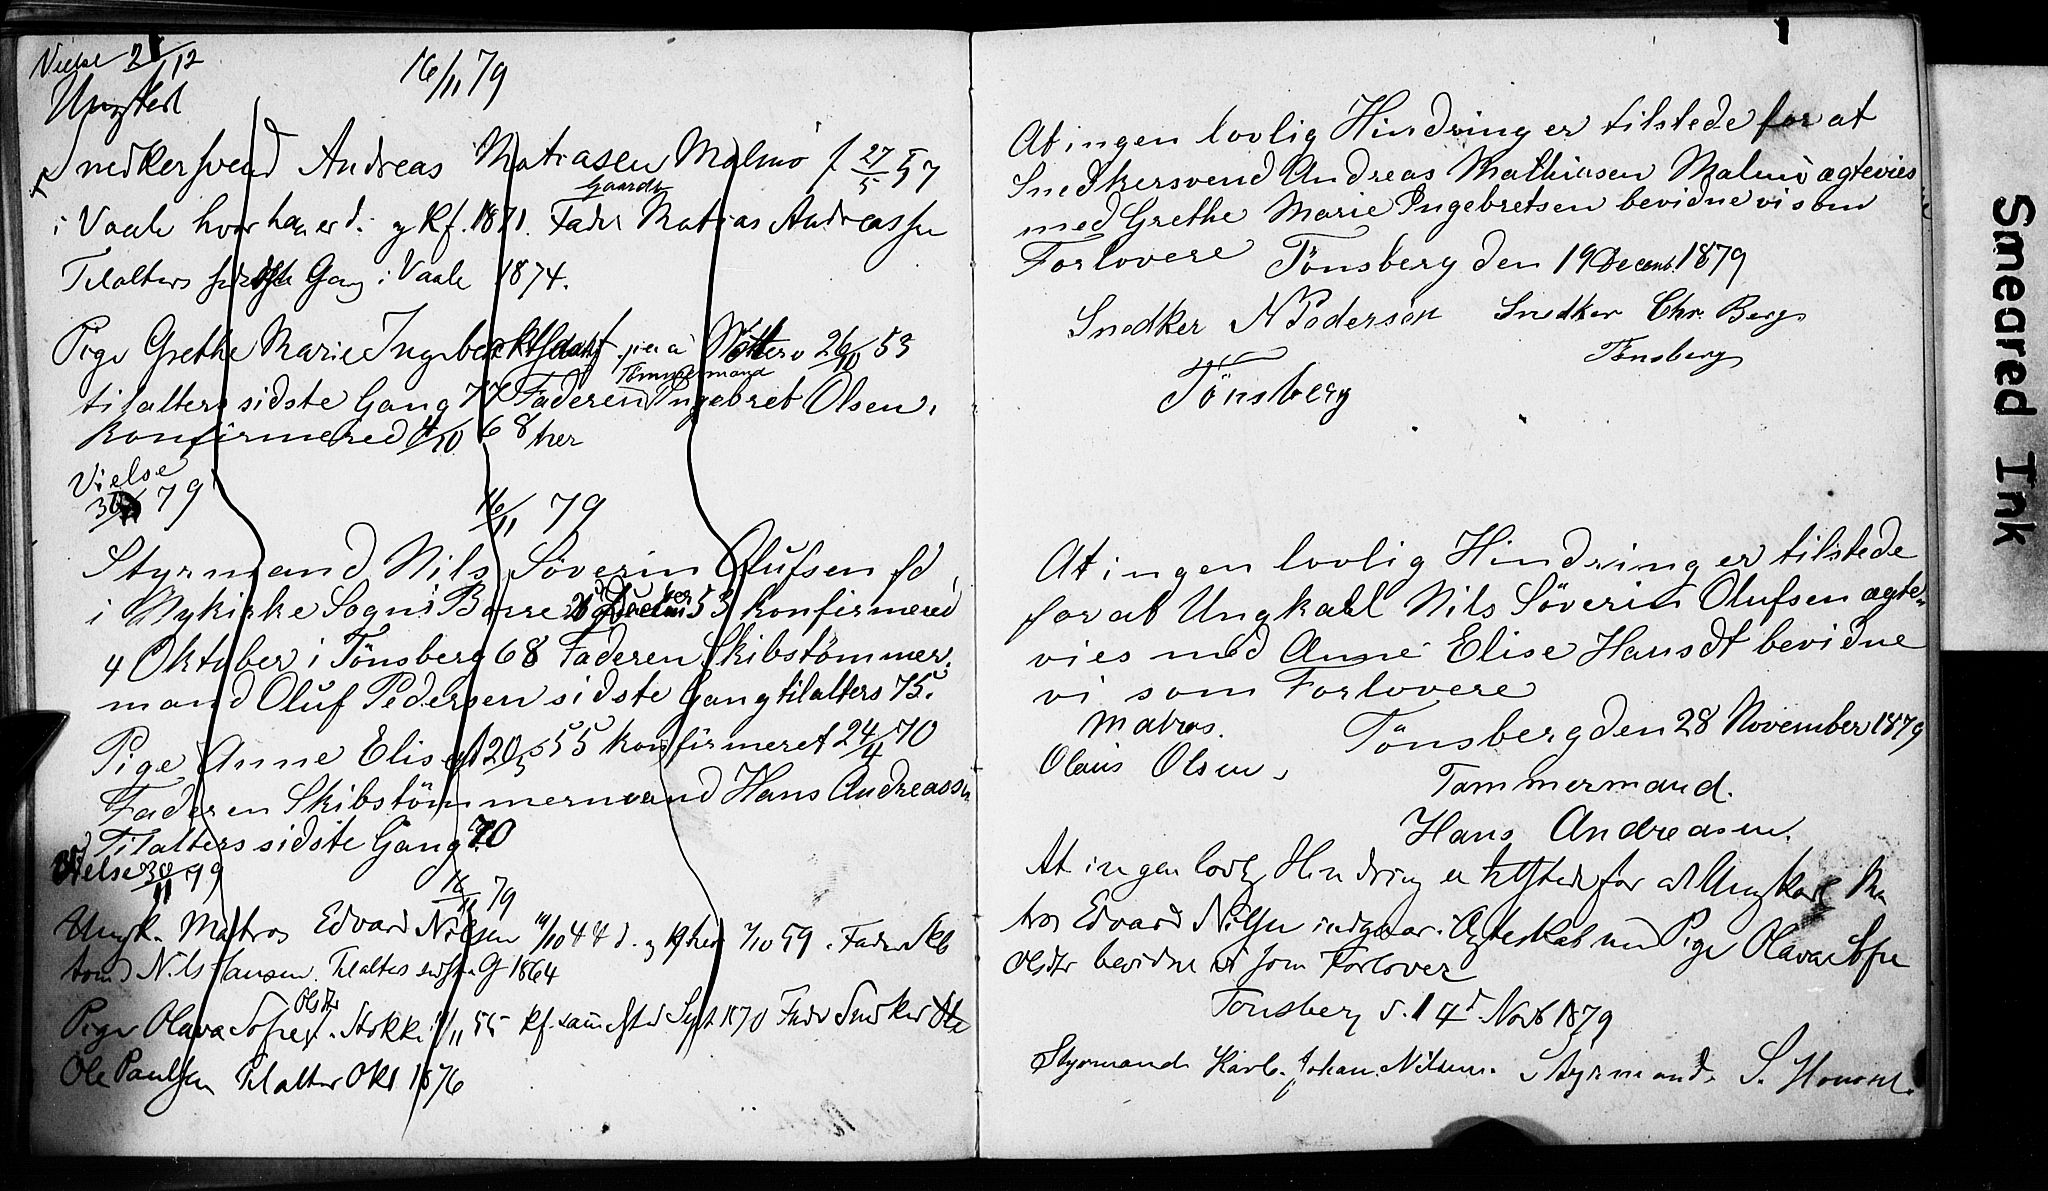 Vielse 2/12
16/11 79
Ungkarl
Snedkersvend Andreas Matiasen Malmö f 27/5 57
Gaardb
i Vaale hvor han er d. og kf. 1871. Fader Matias Andreassen
Tilalters sidste Gang i Vaale 1874.
Pige Grethe Marie Ingebrektsdatt f. paa Nötterö 26/10 53
Tömmermand
tilalters sidste Gang 77 Faderen Ingebret Olsen.
konfirmered 4/10 68 her
Vielse
30/11 79
16/11 79
Styrmand Nils Söverin Olufsen fd
i Nykirke Sogn Borre 53 konfirmered
4 Oktober i Tönsberg 68 Faderen Skibstömmer-
mand Oluf Pedersen sidste Gang tilalters 75.
Pige Anne Elise f 20/5 55 konfirmeret 24/4 70
Faderen Skibstömmermand Hans Andreassn
Tilalters sidste Gang 70
Vielse 30/11 79
16/11 79
Ungk. Matros Edvard Nilsen 10/10 44 d. og kf her 2/10 59. Fader Skb
tömd Nils Hansen. Tilalters sidste G 1864
Olsdtr
Pige Olava Sofie f. Stokke 11/11 55 kf. sammested Sept 1870 Fader Snedker Ole
Ole Paulsen Tilalters Okt 1876
At ingen lovlig Hindring er tilstede for at
Snedkersvend Andreas Mathiasen Malmö ægtevies
med Grethe Marie Ingebretsen bevidne vi som
Forlovere Tönsberg den 19 Decemb. 1879
Snedker N Pedersen Snedker Chr. Berg
Tönsberg
Tönsberg
At ingen lovlig Hindring er tilstede
for at Ungkarl Nils Söverin Olufsen ægte-
vies med Anne Elise Hansdt bevidne
vi som Forlovere
Matros. Tönsberg den 28 November 1879
Olaus Olsen. Tømmermand.
Hans Andreasen.
At ingen lovlg Hindring er tilstede for at Ungkarl Ma
tros Edvard Nilsen indgaar i Ægteskab med Pige Olava Sofie
Olsdtr bevidne vi som Forlover
Tonsberg d. 14d Novb 1879
Styrmand Karl. Johan. Nilsen. Styrmand. S. Hansen.
Smeared Ink